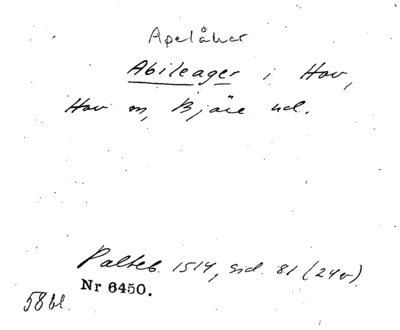 Apelåker
Abileager i Hov,
Hov sn, Bjäre hd.
Palteb. 1514, sid. 81 (24v).
Nr 6450.
58 bl.